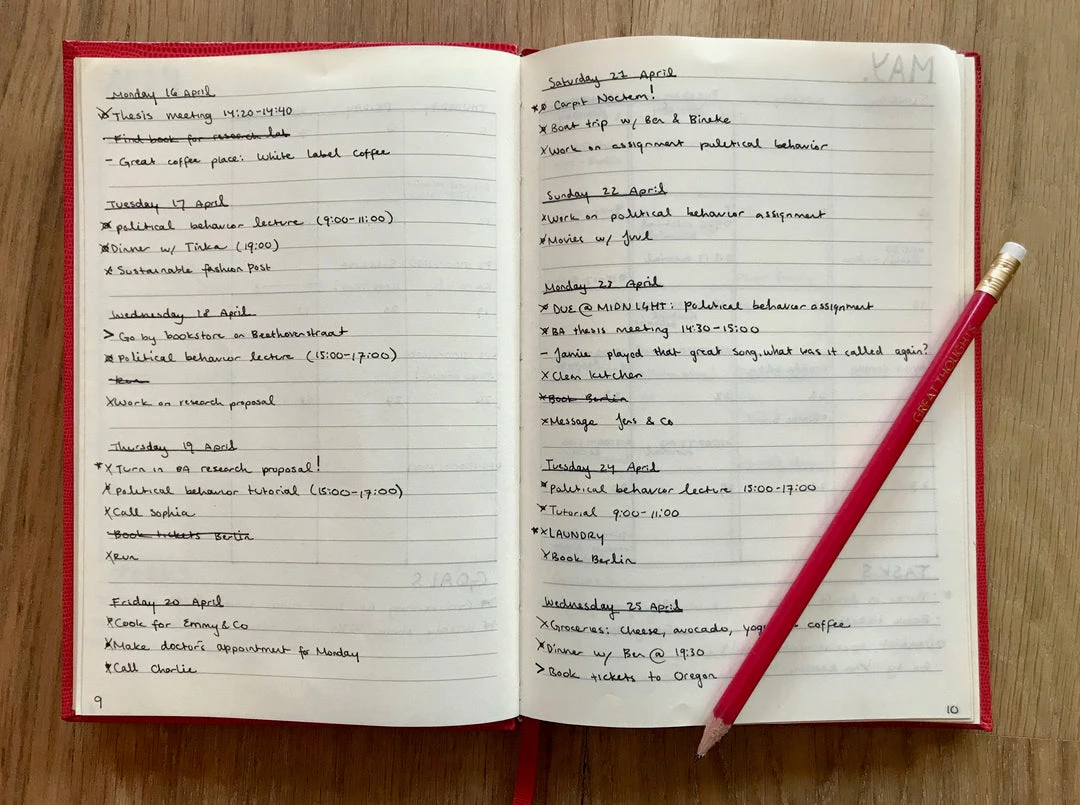 Monday 16 April
x Thesis meeting 14:20-14:40
Find book for research lab
- Great coffee place: White Label Coffee
Tuesday 17 April
x political behavior lecture (9:00-11:00)
x Dinner w/ Tinka (19:00)
x Sustainable fashion post
Wednesday 18 April
> Go by bookstore on Beethovenstraat
x Political behavior lecture (15:00-17:00)
Run
x Work on research proposal
Thursday 19 April
* x Turn in BA research proposal!
x political behavior tutorial (15:00-17:00)
x Call Sophia
Book tickets Berlin
x Run
Friday 20 April
x Cook for Emmy & Co
x Make doctor's appointment for Monday
x Call Charlie
9
MAY.
GOALS
TASKS
Saturday 21 April
* Carpit Noctem!
x Boat trip w/ Ben & Bineke
x Work on assignment political behavior
Sunday 22 April
x Work on political behavior assignment
x Movies w/ Juul
Monday 23 April
x DUE @ MIDNIGHT: political behavior assignment
x BA thesis meeting 14:30-15:00
- Jamie played that great song, what was it called again?
x Clean kitchen
x Book Berlin
x Message Jens & Co
Tuesday 24 April
x political behavior lecture 15:00-17:00
x Tutorial 9:00-11:00
* x LAUNDRY
x Book Berlin
Wednesday 25 April
x Groceries: cheese, avocado, coffee
x Dinner w/ Ben @ 19:30
> Book tickets to Oregon
10
GREAT THOUGHTS